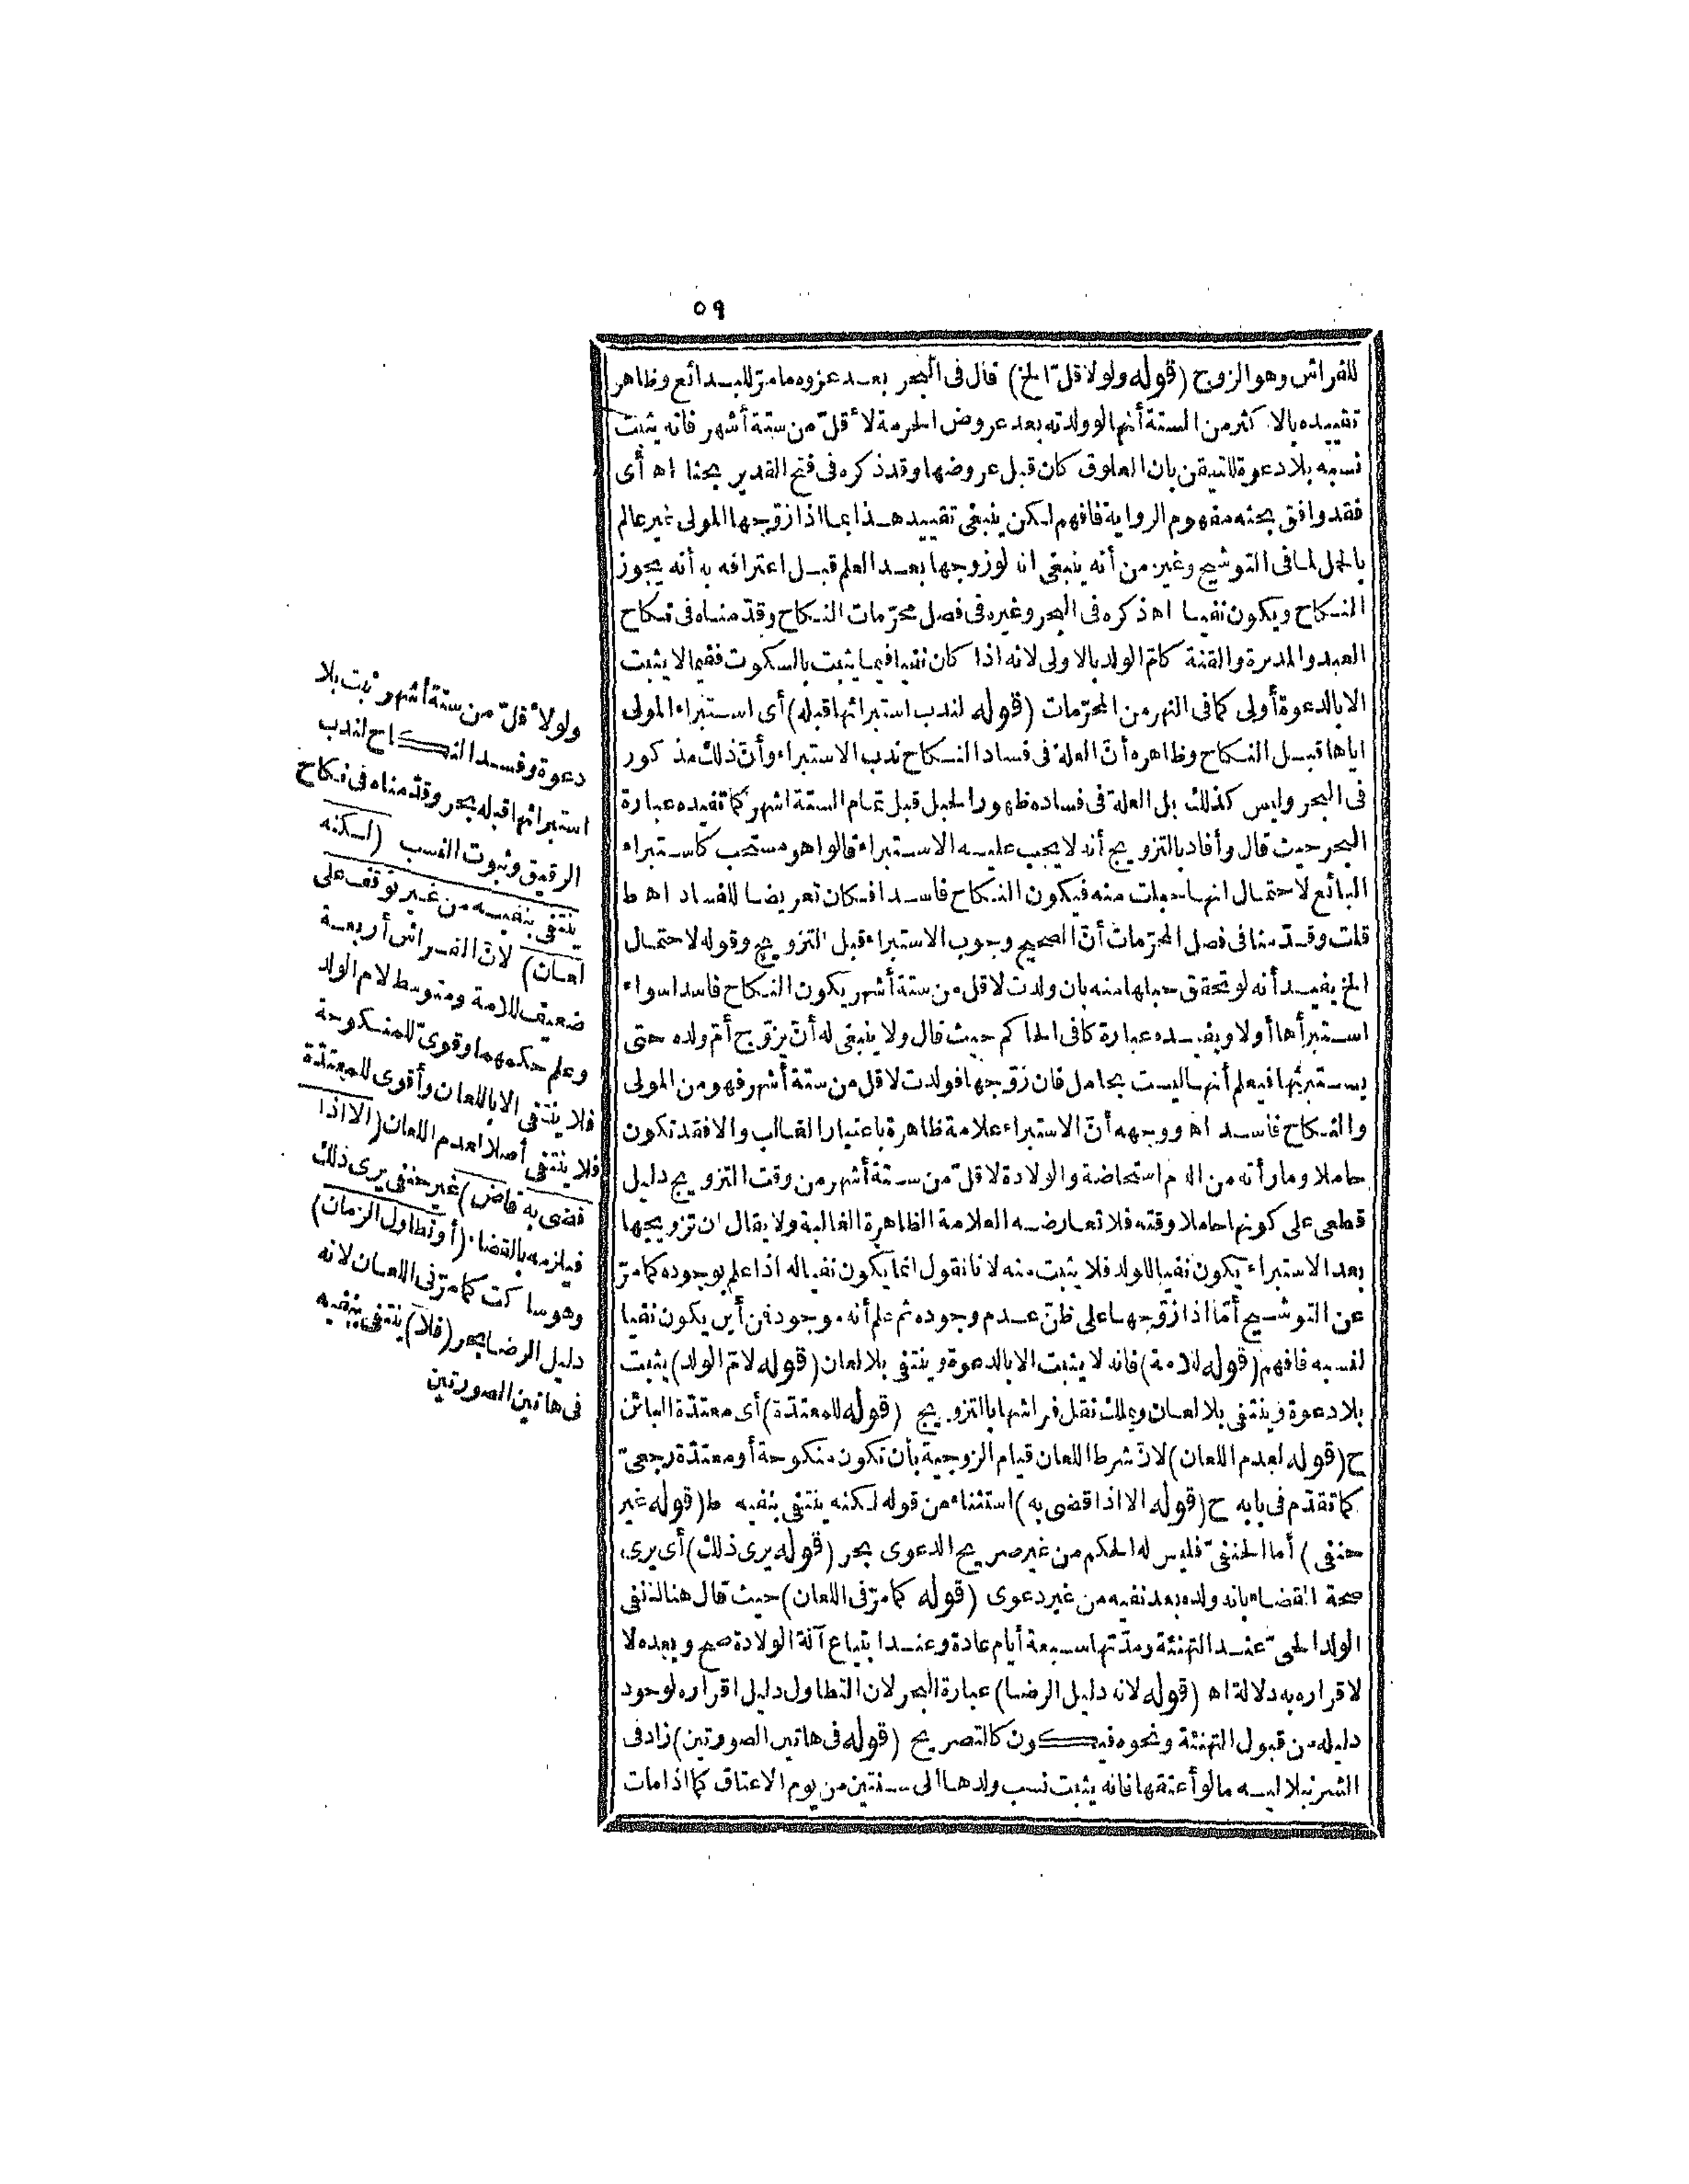 ٥٩
للفراش وهو الزوج (قوله ولو لاقل الخ) قال فى البحر بعد عزوه ما مر للبدائع وظاهر
تقييده بالاكثر من الستة أنها لو ولدته بعد عروض الحرمة لأقل من ستة أشهر فانه يثبت
نسبه بلا دعوة للتيقن بان العلوق كان قبل عروضها وقد ذكره فى فتح القدير بحثا اه أى
فقد وافق بحثه مفهوم الرواية فافهم لكن ينبغى تقييد هذا بما اذا زوّجها المولى غير عالم
بالحمل لما فى التوشيح وغيره من أنه ينبغى انه لو زوجها بعد العلم قبل اعترافه به أنه يجوز
النكاح ويكون نفيا اه ذكره فى البحر وغيره فى فصل محرّمات النكاح وقدّمناه فى نكاح
العبد والمدبرة والقنة كامّ الولد بالاولى لانه اذا كان نفيا فيما يثبت بالسكوت ففيما لا يثبت
الا بالدعوة أولى كما فى النهر من المحرّمات (قوله لندب استبرائها قبله) أى استبراء المولى
اياها قبل النكاح وظاهره أنّ العلة فى فساد النكاح ندب الاستبراء وأنّ ذلك مذكور
فى البحر وليس كذلك بل العلة فى فساده ظهور الحبل قبل تمام الستة اشهر كما تفيده عبارة
البحر حيث قال وأفاد بالتزويج أنه لا يجب عليه الاستبراء قالوا هو مستحب كاستبراء
البائع لاحتمال انها حبلت منه فيكون النكاح فاسدا فكان تعريضا للفساد اه ط
قلت وقدّمنا فى فصل المحرّمات أنّ الصحيح وجوب الاستبراء قبل التزويج وقوله لاحتمال
الخ يفيد أنه لو تحقق حبلها منه بان ولدت لاقل من ستة أشهر يكون النكاح فاسدا سواء
استبرأها أولا ويفيده عبارة كافى الحاكم حيث قال ولا ينبغى له أنّ يزوّج أمّ ولده حتى
يستبرئها فيعلم أنها ليست بحامل فان زوّجها فولدت لاقل من ستة أشهر فهو من المولى
والنكاح فاسد اه ووجهه أنّ الاستبراء علامة ظاهرة باعتبار الغالب والا فقد تكون
حاملا وما رأته من الدم استحاضة والولادة لاقلّ من ستة أشهر من وقت التزويج دليل
قطعى على كونها حاملا وقته فلا تعارضه العلامة الظاهرة الغالبة ولا يقال ان تزويجها
بعد الاستبراء يكون نفيا للولد فلا يثبت منه لانا نقول انما يكون نفيا له اذا علم بوجوده كما مرّ
عن التوشيح أمّا اذا زوّجها على ظنّ عدم وجوده ثم علم أنه موجود فمن أين يكون نفيا
لنسبه فافهم (قوله للامة) فانه لا يثبت الا بالدعوة وينتفى بلا لعان (قوله لامّ الولد) يثبت
بلا دعوة وينتفى بلا لعان ويملك نقل فراشها بالتزويج (قوله للمعتدّة) أى معتدّة البائن
ح (قوله لعدم اللعان) لانّ شرط اللعان قيام الزوجية بأن تكون منكوحة أو معتدّة رجعىّ
كما تقدّم فى بابه ح (قوله الا اذا قضى به) استثناء من قوله لكنه ينتفى بنفيه ط (قوله غير
حنفى) أما الحنفىّ فليس له الحكم من غير صريح الدعوى بحر (قوله يرى ذلك) أى يرى
صحة القضاء بانه ولده بعد نفيه من غير دعوى (قوله كما مرّ فى اللعان) حيث قال هنا لك نفى
الولد الحىّ عند التهنئة ومدّتها سبعة أيام عادة وعند ابتياع آلة الولادة صح وبعده لا
لاقراره به دلالة اه (قوله لانه دليل الرضا) عبارة البحر لان التطاول دليل اقراره لوجود
دليله من قبول التهنئة ونحوه فيكون كالتصريح (قوله فى هاتين الصورتين) زاد فى
الشرنبلالية ما لو أعتقها فانه يثبت نسب ولدها الى سنتين من يوم الاعتاق كما اذا مات
ولو لأقلّ من ستة أشهر ثبت بلا
دعوة وفسد النكاح لندب
استبرائها قبله بحر وقدّمناه فى نكاح
الرقيق وثبوت النسب (لكنه
ينتفى بنفيه من غير توقف على
لعان) لانّ الفراش أربعة
ضعيف للامة ومتوسط لام الولد
وعلم حكمهما وقوىّ للمنكوحة
فلا ينتفى الا باللعان وأقوى للمعتدّة
فلا ينتفى أصلا لعدم اللعان (الا اذا
قضى به قاض) غير حنفى يرى ذلك
فيلزمه بالقضاء (أو تطاول الزمان)
وهو ساكت كما مرّ فى اللعان لانه
دليل الرضا بحر (فلا) ينتفى بنفيه
فى هاتين الصورتين